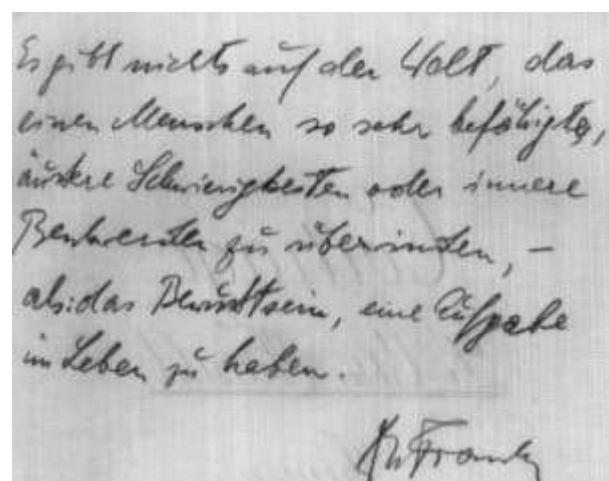 Es gibt nichts auf der Welt, das
einen Menschen so sehr befähigte,
äußere Schwierigkeiten oder innere
Beschwerden zu überwinden, –
als: das Bewußtsein, eine Aufgabe
im Leben zu haben.
Frankl